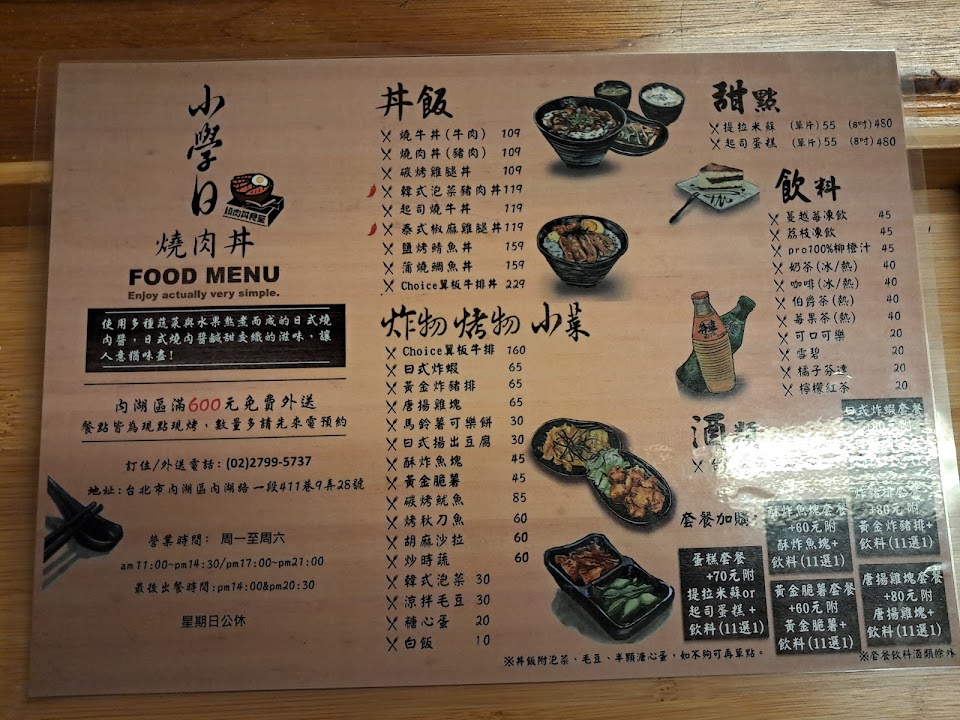 小學日
燒肉丼食堂
燒肉丼
FOOD MENU
Enjoy actually very simple.
使用多種蔬菜與水果熬煮而成的日式燒
肉醬，日式燒肉醬鹹甜交織的滋味，讓
人意猶味盡！
內湖區滿600元免費外送
餐點皆為現點現烤，數量多請先來電預約
訂位/外送電話：(02)2799-5737
地址：台北市內湖區內湖路一段411巷9弄28號
營業時間： 周一至周六
am11:00~pm14:30/pm17:00~pm21:00
最後出餐時間：pm14:00&pm20:30
星期日公休
丼飯
燒牛丼(牛肉) 109
燒肉丼(豬肉) 109
碳烤雞腿丼 109
韓式泡菜豬肉丼119
起司燒牛丼 119
泰式椒麻雞腿丼119
鹽烤鯖魚丼 159
蒲燒鯛魚丼 159
Choice翼板牛排丼 229
炸物 烤物 小菜
Choice翼板牛排 160
日式炸蝦 65
黃金炸豬排 65
唐揚雞塊 65
馬鈴薯可樂餅 30
日式揚出豆腐 30
酥炸魚塊 45
黃金脆薯 45
碳烤魷魚 85
烤秋刀魚 60
胡麻沙拉 60
炒時蔬 60
韓式泡菜 30
涼拌毛豆 30
糖心蛋 20
白飯 10
甜點
提拉米蘇 (單片)55 (8吋)480
起司蛋糕 (單片)55 (8吋)480
飲料
蔓越莓凍飲 45
荔枝凍飲 45
pro100%柳橙汁 45
奶茶(冰/熱) 40
咖啡(冰/熱) 40
伯爵茶(熱) 40
莓果茶(熱) 40
可口可樂 20
雪碧 20
橘子芬達 20
檸檬紅茶 20
酒類
套餐加購
蛋糕套餐
+70元附
提拉米蘇or
起司蛋糕+
飲料(11選1)
酥炸魚塊套餐
+60元附
酥炸魚塊+
飲料(11選1)
黃金脆薯套餐
+60元附
黃金脆薯+
飲料(11選1)
日式炸蝦套餐
+80元附
炸豬排套餐
+80元附
黃金炸豬排+
飲料(11選1)
唐揚雞塊套餐
+80元附
唐揚雞塊+
飲料(11選1)
※丼飯附泡菜、毛豆、半顆溏心蛋，如不夠可再單點。
※套餐飲料酒類除外